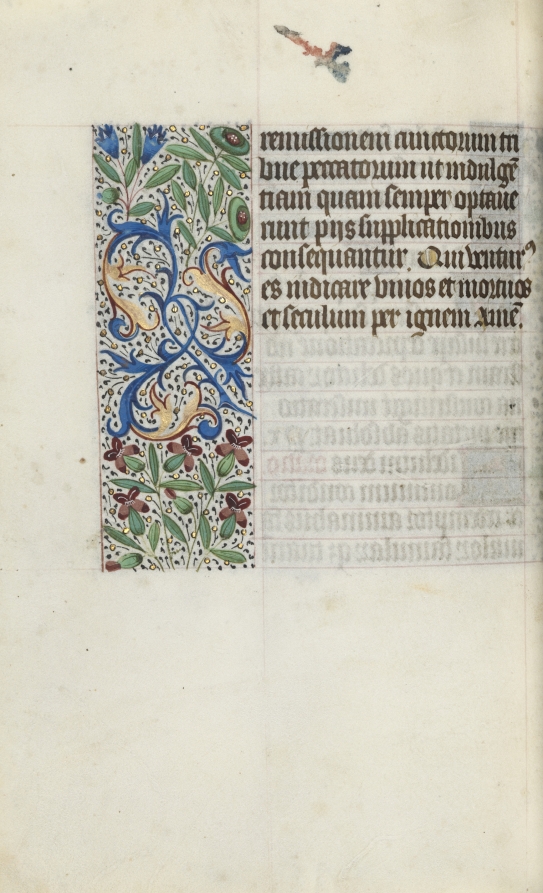 remissionem cunctorum tri
bue peccatorum ut indulgē
tiam quam semper optaue
runt pijs supplicationibus
consequantur. Qui ventur⁹
es iudicare viuos et mortuos
et seculum per ignem Amē.